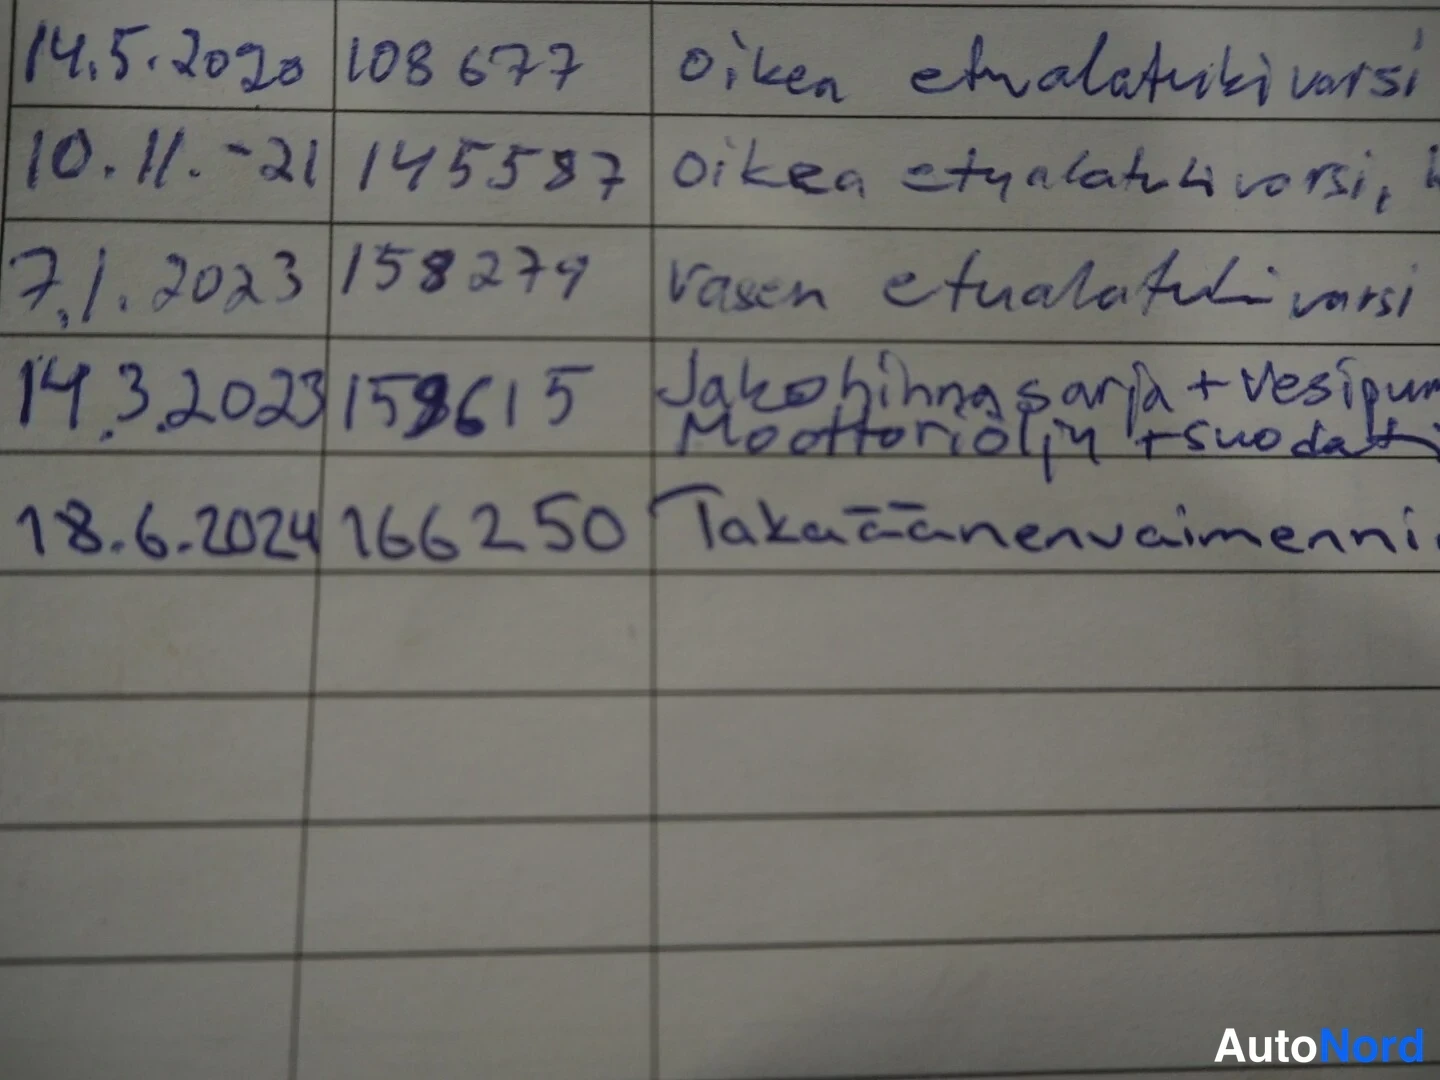 14.5.2020 108 677 oikea etualatukivarsi
10.11.-21 145587 oikea etualatukivarsi,
7.1.2023 158279 vasen etualatukivarsi
14.3.2023 159615 Jakohihnasarja + Vesipum
Moottoriöljy + suodati
18.6.2024 166250 Takaäänenvaimenni
AutoNord